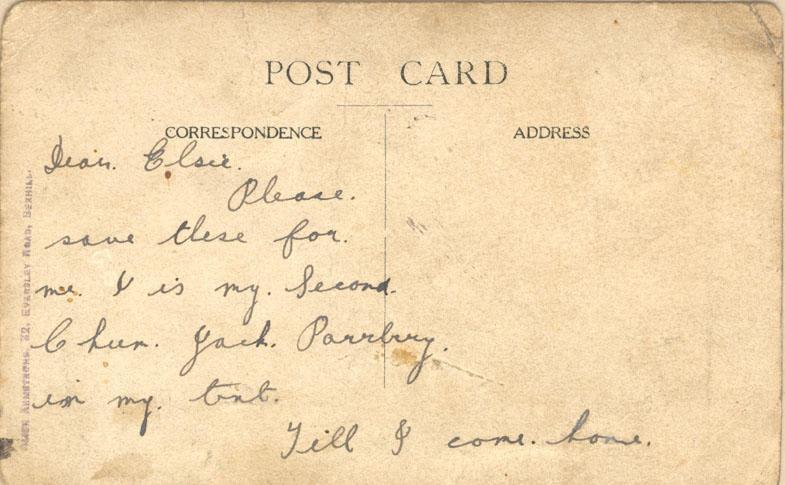 POST CARD
CORRESPONDENCE
ADDRESS
Dear. Elsie.
Please.
save these for.
me. & is my. Second.
Chum. Jack. Parrbry.
in my. tent.
Till I come. home.
ARMSTRONG, 32, EVERSLEY ROAD, BEXHILL.